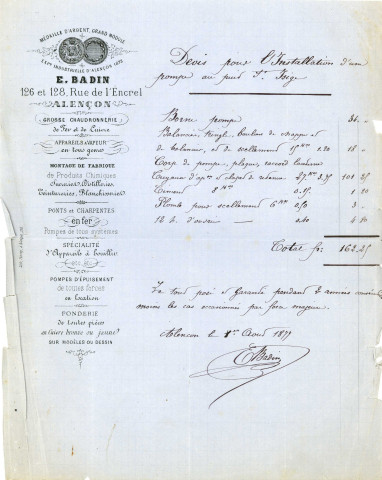 MÉDAILLE D'ARGENT, GRAND MODULE
EXPON INDUSTRIELLE D'ALENÇON
E. BADIN
126 et 128, Rue de l'Encrel
ALENÇON
GROSSE CHAUDRONNERIE
de Fer et de Cuivre
APPAREILS A VAPEUR
en tous genres
MONTAGE DE FABRIQUE
de Produits Chimiques
Sucreries, Distilleries,
Teintureries, Blanchisseries
PONTS et CHARPENTES
en fer
Pompes de tous systèmes
SPÉCIALITÉ
d'Appareils à bouillir
POMPES D'ÉPUISEMENT
de toutes forces
en location
FONDERIE
de toutes pièces
en Cuivre bronze ou jaune
SUR MODÈLES OU DESSIN
Devis pour l'Installation d'une
pompe au puit St
Borne pompe 36 "
Balancier, tringle, boulons de chappe et
de balancier, et de scellement 15 1.20 18 "
Corp de pompe, plaque, raccord
Tuyaux d'apon et clapet de retenue 3.75 101 25
Ciment 8 0.15 1 20
Plomb pour scellement 6 0,50 3 "
12 h. d'ouvrier 0.40 4 80
Total fr. 162.25
Le tout posé et garantie pendant
moins les cas occasionné par force majeure
Alençon le 1er Aout 1877
E Badin